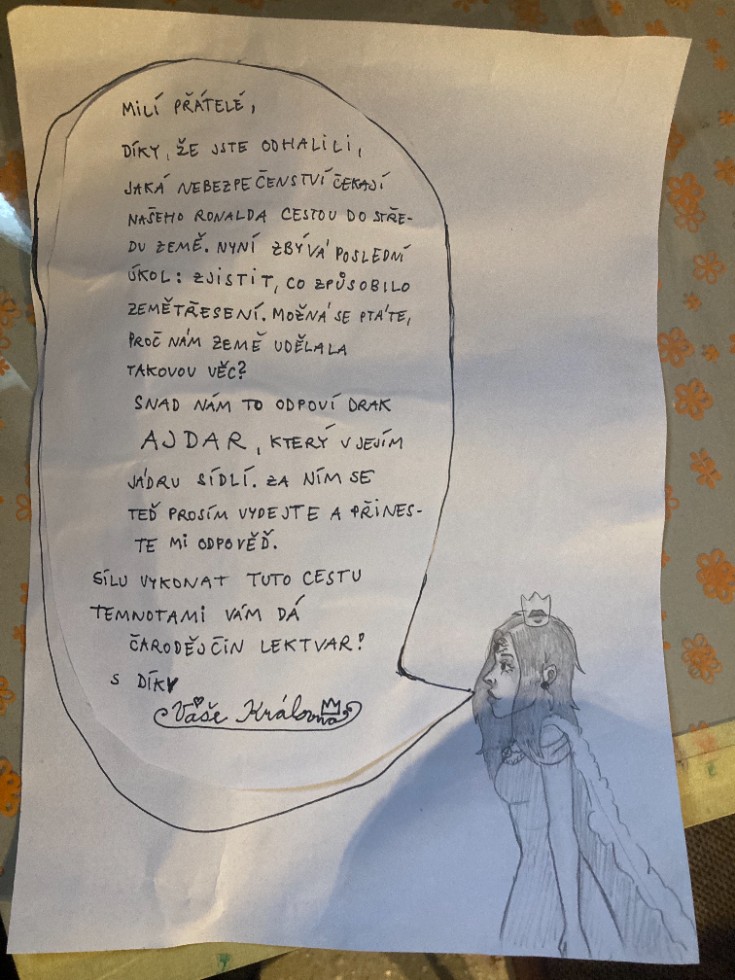 MILÍ PŘÁTELÉ,
DÍKY, ŽE JSTE ODHALILI,
JAKÁ NEBEZPEČENSTVÍ ČEKAJÍ
NAŠEHO RONALDA CESTOU DO STŘE-
DU ZEMĚ. NYNÍ ZBÝVÁ POSLEDNÍ
ÚKOL: ZJISTIT, CO ZPŮSOBILO
ZEMĚTŘESENÍ. MOŽNÁ SE PTÁTE,
PROČ NÁM ZEMĚ UDĚLALA
TAKOVOU VĚC?
SNAD NÁM TO ODPOVÍ DRAK
AJDAR, KTERÝ V JEJÍM
JÁDRU SÍDLÍ. ZA NÍM SE
TEĎ PROSÍM VYDEJTE A PŘINES-
TE MI ODPOVĚĎ.
SÍLU VYKONAT TUTO CESTU
TEMNOTAMI VÁM DÁ
ČARODĚJČIN LEKTVAR!
S DÍKY
Vaše Královna